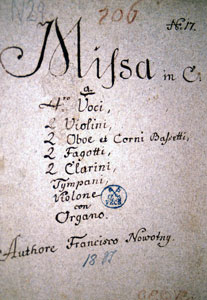 206
No. 17.
Missa in C.
a
4tro Voci,
2 Violini,
2 Oboe et Corni Bassetti,
2 Fagotti,
2 Clarini,
Tympani,
Violone
con
Organo.
Authore Francisco Nowotny.